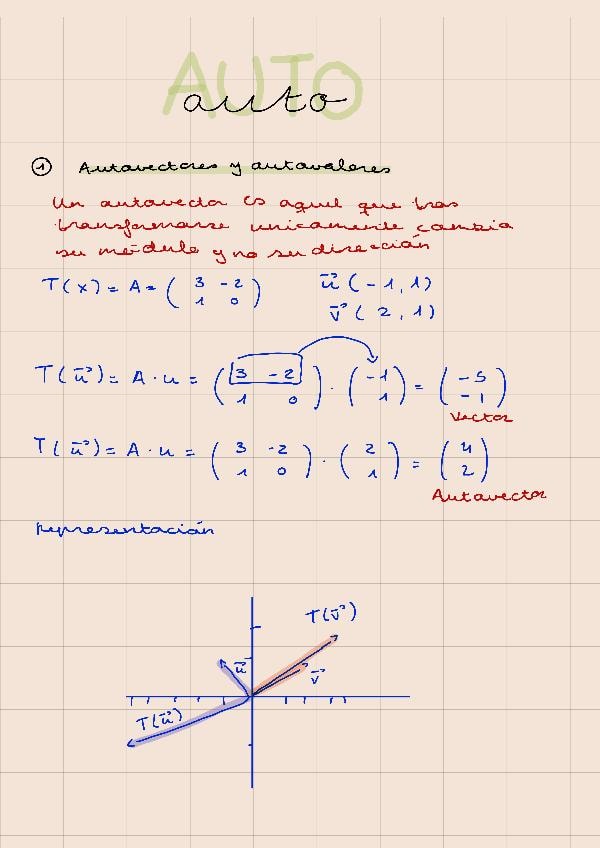 AUTO
auto
① Autovectores y autovalores
Un autovector es aquel que tras
transformarse unicamente cambia
su módulo y no su dirección
T(x) = A = ( 3 -2 ) u⃗ ( -1, 1)
( 1 0 ) v⃗ ( 2, 1)
T(u⃗) = A · u = ( 3 -2 ) · ( -1 ) = ( -5 )
( 1 0 ) ( 1 ) ( -1 )
Vector
T(u⃗) = A · u = ( 3 -2 ) · ( 2 ) = ( 4 )
( 1 0 ) ( 1 ) ( 2 )
Autovector
Representación
T(v⃗)
u⃗
v⃗
T(u⃗)